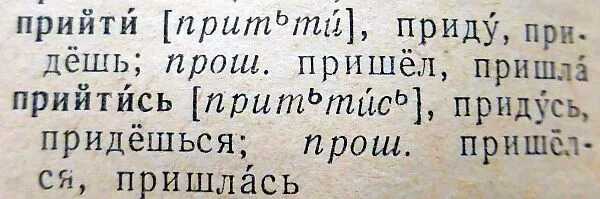 прийти́ [притьти́], приду́, при-
дёшь; прош. пришёл, пришла́
прийти́сь [притьти́сь], приду́сь,
придёшься; прош. пришёл-
ся, пришла́сь